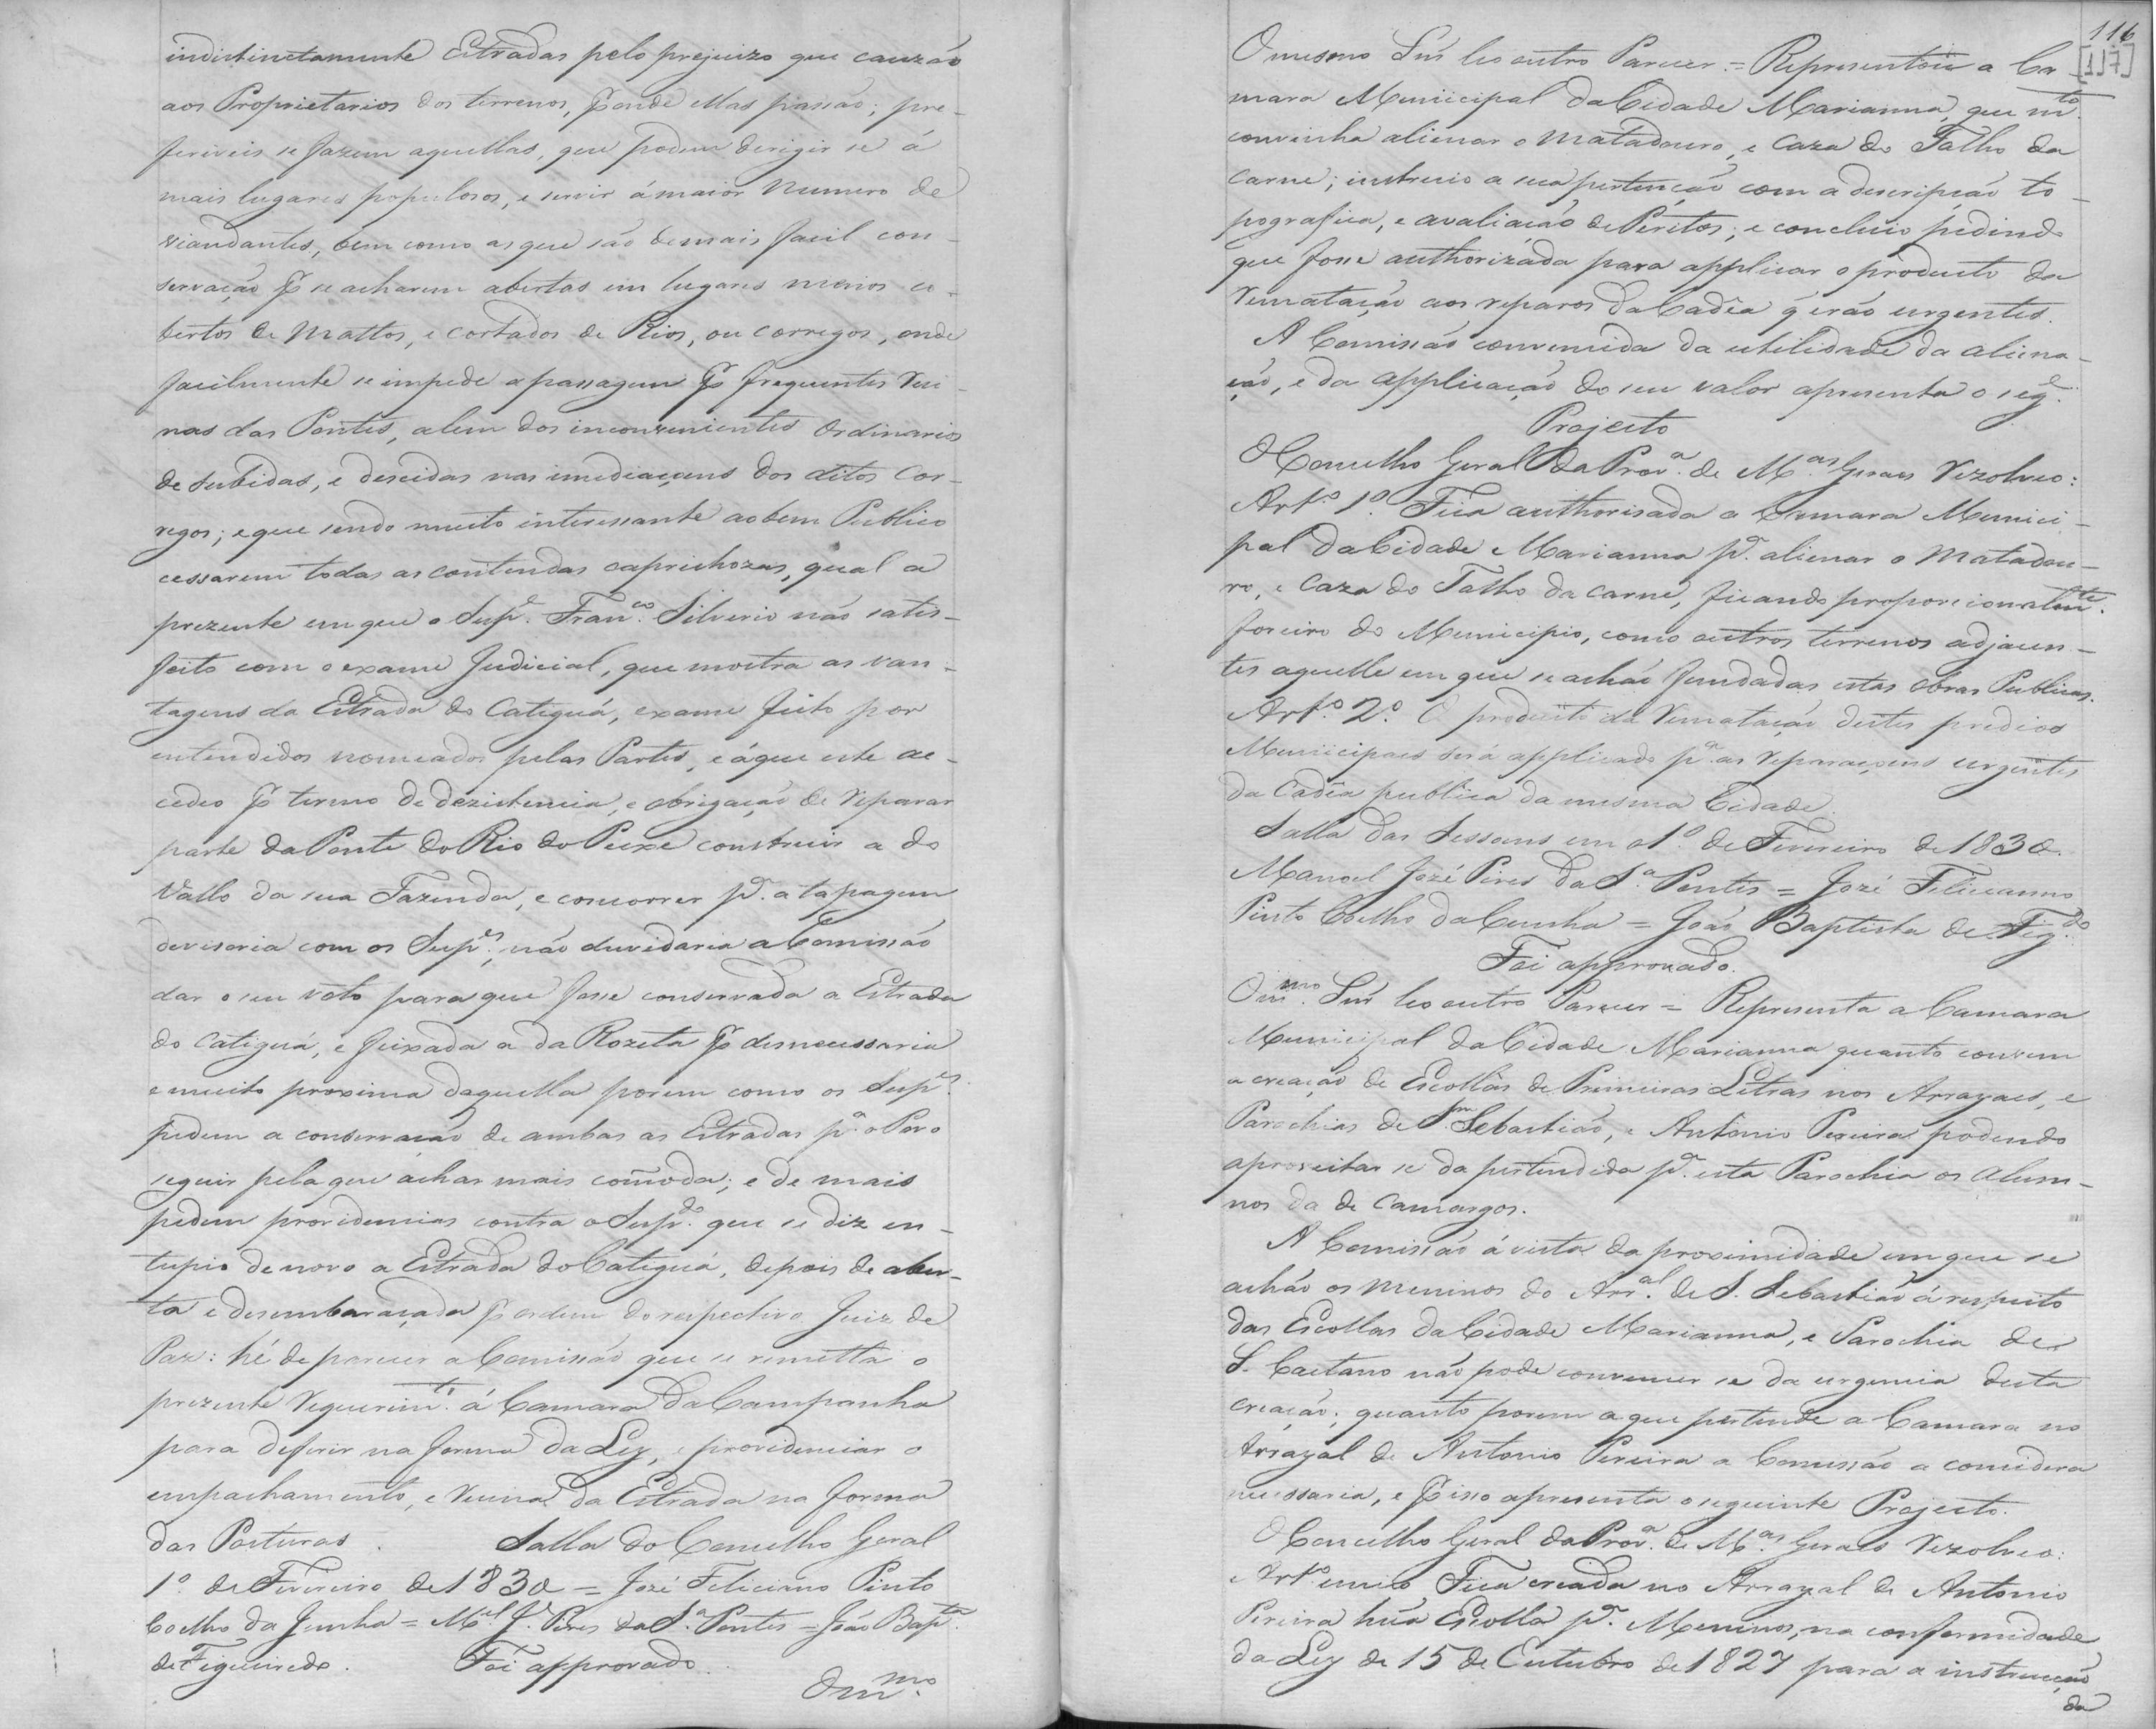 indistinctamente Estradas pelo prejuizo que cauzão
aos Proprietarios dos terrenos, pr onde ellas passão; pre-
feriveis se fazem aquellas, que podem derigir se á
mais lugares populosos, e servir á maior numero de
viandantes, bem como as que são de mais facil con-
servação pr se acharem abertas em lugares menos co-
bertos de Mattos, e cortados de Rios, ou corregos, onde
facilmente se impede a passagem pr frequentes rui-
nas das Pontes, alem dos inconvenientes ordinarios
de subidas, e descidas nas imediaçoens dos ditos Cor-
regos; e que sendo muito interessante ao bem Publico
cessarem todas as contendas caprichozas, qual a
prezente em que o Supe. Franco. Silverio não satis-
feito com o exame Judicial, que mostra as van-
tagens da Estrada do Catiguá, exame feito por
entendidos nomeados pelas Partes, e áque este ac-
cedeo pr termo de dezistencia, e obrigação de reparar
parte da Ponte do Rio do Peixe construir a do
Vallo da sua Fazenda, e concorrer pa. a tapagem
devisoria com os Supes., não duvidaria a Comissão
dar o seu voto para que fosse conservada a Estrada
do Catiguá, e feixada a da Rozeta pr desnecessaria
e muito proxima daquella porem como os Supes.
pedem a conservação de ambas as Estradas pa. o Povo
seguir pela que achar mais com̃oda; e de mais
pedem providencias contra o Supdo. que se diz en-
tupio de novo a Estrada do Catiguá, depois de aber-
ta e desembaraçada pr ordem do respectivo Juiz de
Paz: hé de parecer a Comissão que se remetta o
prezente requerimto. á Camara da Campanha
para deferir na forma da Ley, e providenciar o
empachamento, e ruina da Estrada na forma
das Posturas. Salla do Conselho Geral
1º de Fevereiro de 1830 = Jozé Feliciano Pinto
Coelho da Cunha = Mel. Je. Pires da Sa. Pontes = João Bapta.
de Figueiredo. Foi approvado.
O mmo.
116
[117]
O mesmo Snr̃ leo outro Parecer = Representou a Ca-
mara Municipal da Cidade Marianna, que mto.
convinha alienar o Matadouro, e Caza do Talho da
carne; instruio a sua pertenção com a descripção to-
pografica, e avaliação de Peritos; e concluio pedindo
que fosse authorizada para applicar o producto da
rematação aos reparos da Cadêa q̃ erão urgentes.
A Comissão convencida da utilidade da aliena-
ção, e da applicação do seu valor apresenta o sege.
Projecto
O Conselho Geral da Prova. de Mas. Geraes rezolveo:
Arto. 1º Fica authorisada a Camara Munici-
pal da Cidade Marianna pa. alienar o Matadou-
ro, e Caza do Talho da carne, ficando proporcionalmte.
foreiro do Municipio, como outros terrenos adjacen-
tes aquelle em que se achão fundadas estas obras Publicas.
Arto. 2º. O producto da rematação destes predios
Municipaes será applicado pa. as reparaçoens urgentes
da Cadêa publica da mesma Cidade.
Salla das Sessoens em o 1º. de Fevereiro de 1830.
Manoel José Pires da Sa. Pontes = Jozé Feliciano
Pinto Coelho da Cunha = João Baptista de Figdo.
Foi approvado.
O mmo. Snr̃ leo outro Parecer = Representa a Camara
Municipal da Cidade Marianna quanto convem
a creação de Escollas de Primeiras Letras nos Arrayaes, e
Parochias de Sm. Sebastião, e Antonio Pereira podendo
aproveitar se da pertendida pa. esta Parochia os alum-
nos da de Camargos.
A Comissão á vista da proximidade em que se
achão os meninos do Arral. de S. Sebastião á respeito
das Escollas da Cidade Marianna, e Parochia de
S. Caetano não pode convencer se da urgencia desta
creação; quanto porem a que pertende a Camara no
Arrayal de Antonio Pereira a Comissão a considera
necessaria, e pr isso apresenta o seguinte Projecto.
O Conselho Geral da Prova. de Mas. Geraes rezolveo:
Arto. unico Fica creada no Arrayal de Antonio
Pereira hũa Escolla pa. Meninos, na conformidade
da Ley de 15 de Outubro de 1827 para a instrucção
da